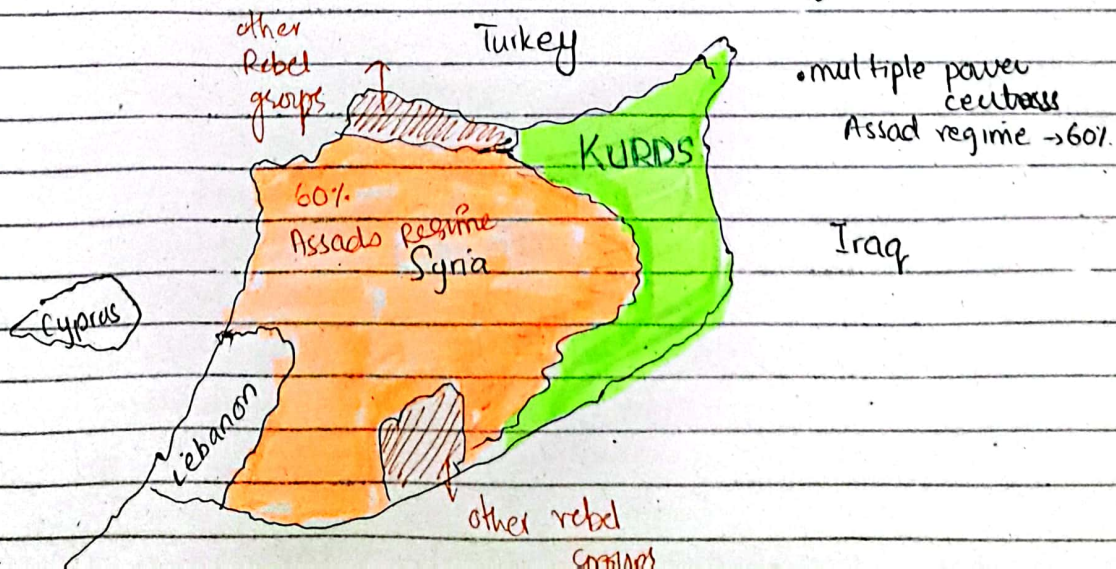 other
Rebel
groups
Turkey
•multiple power
centresss
Assad regime →60%.
KURDS
60%
Assads Regime
Syria
Iraq
Cyprus
Lebanon
other rebel
groups